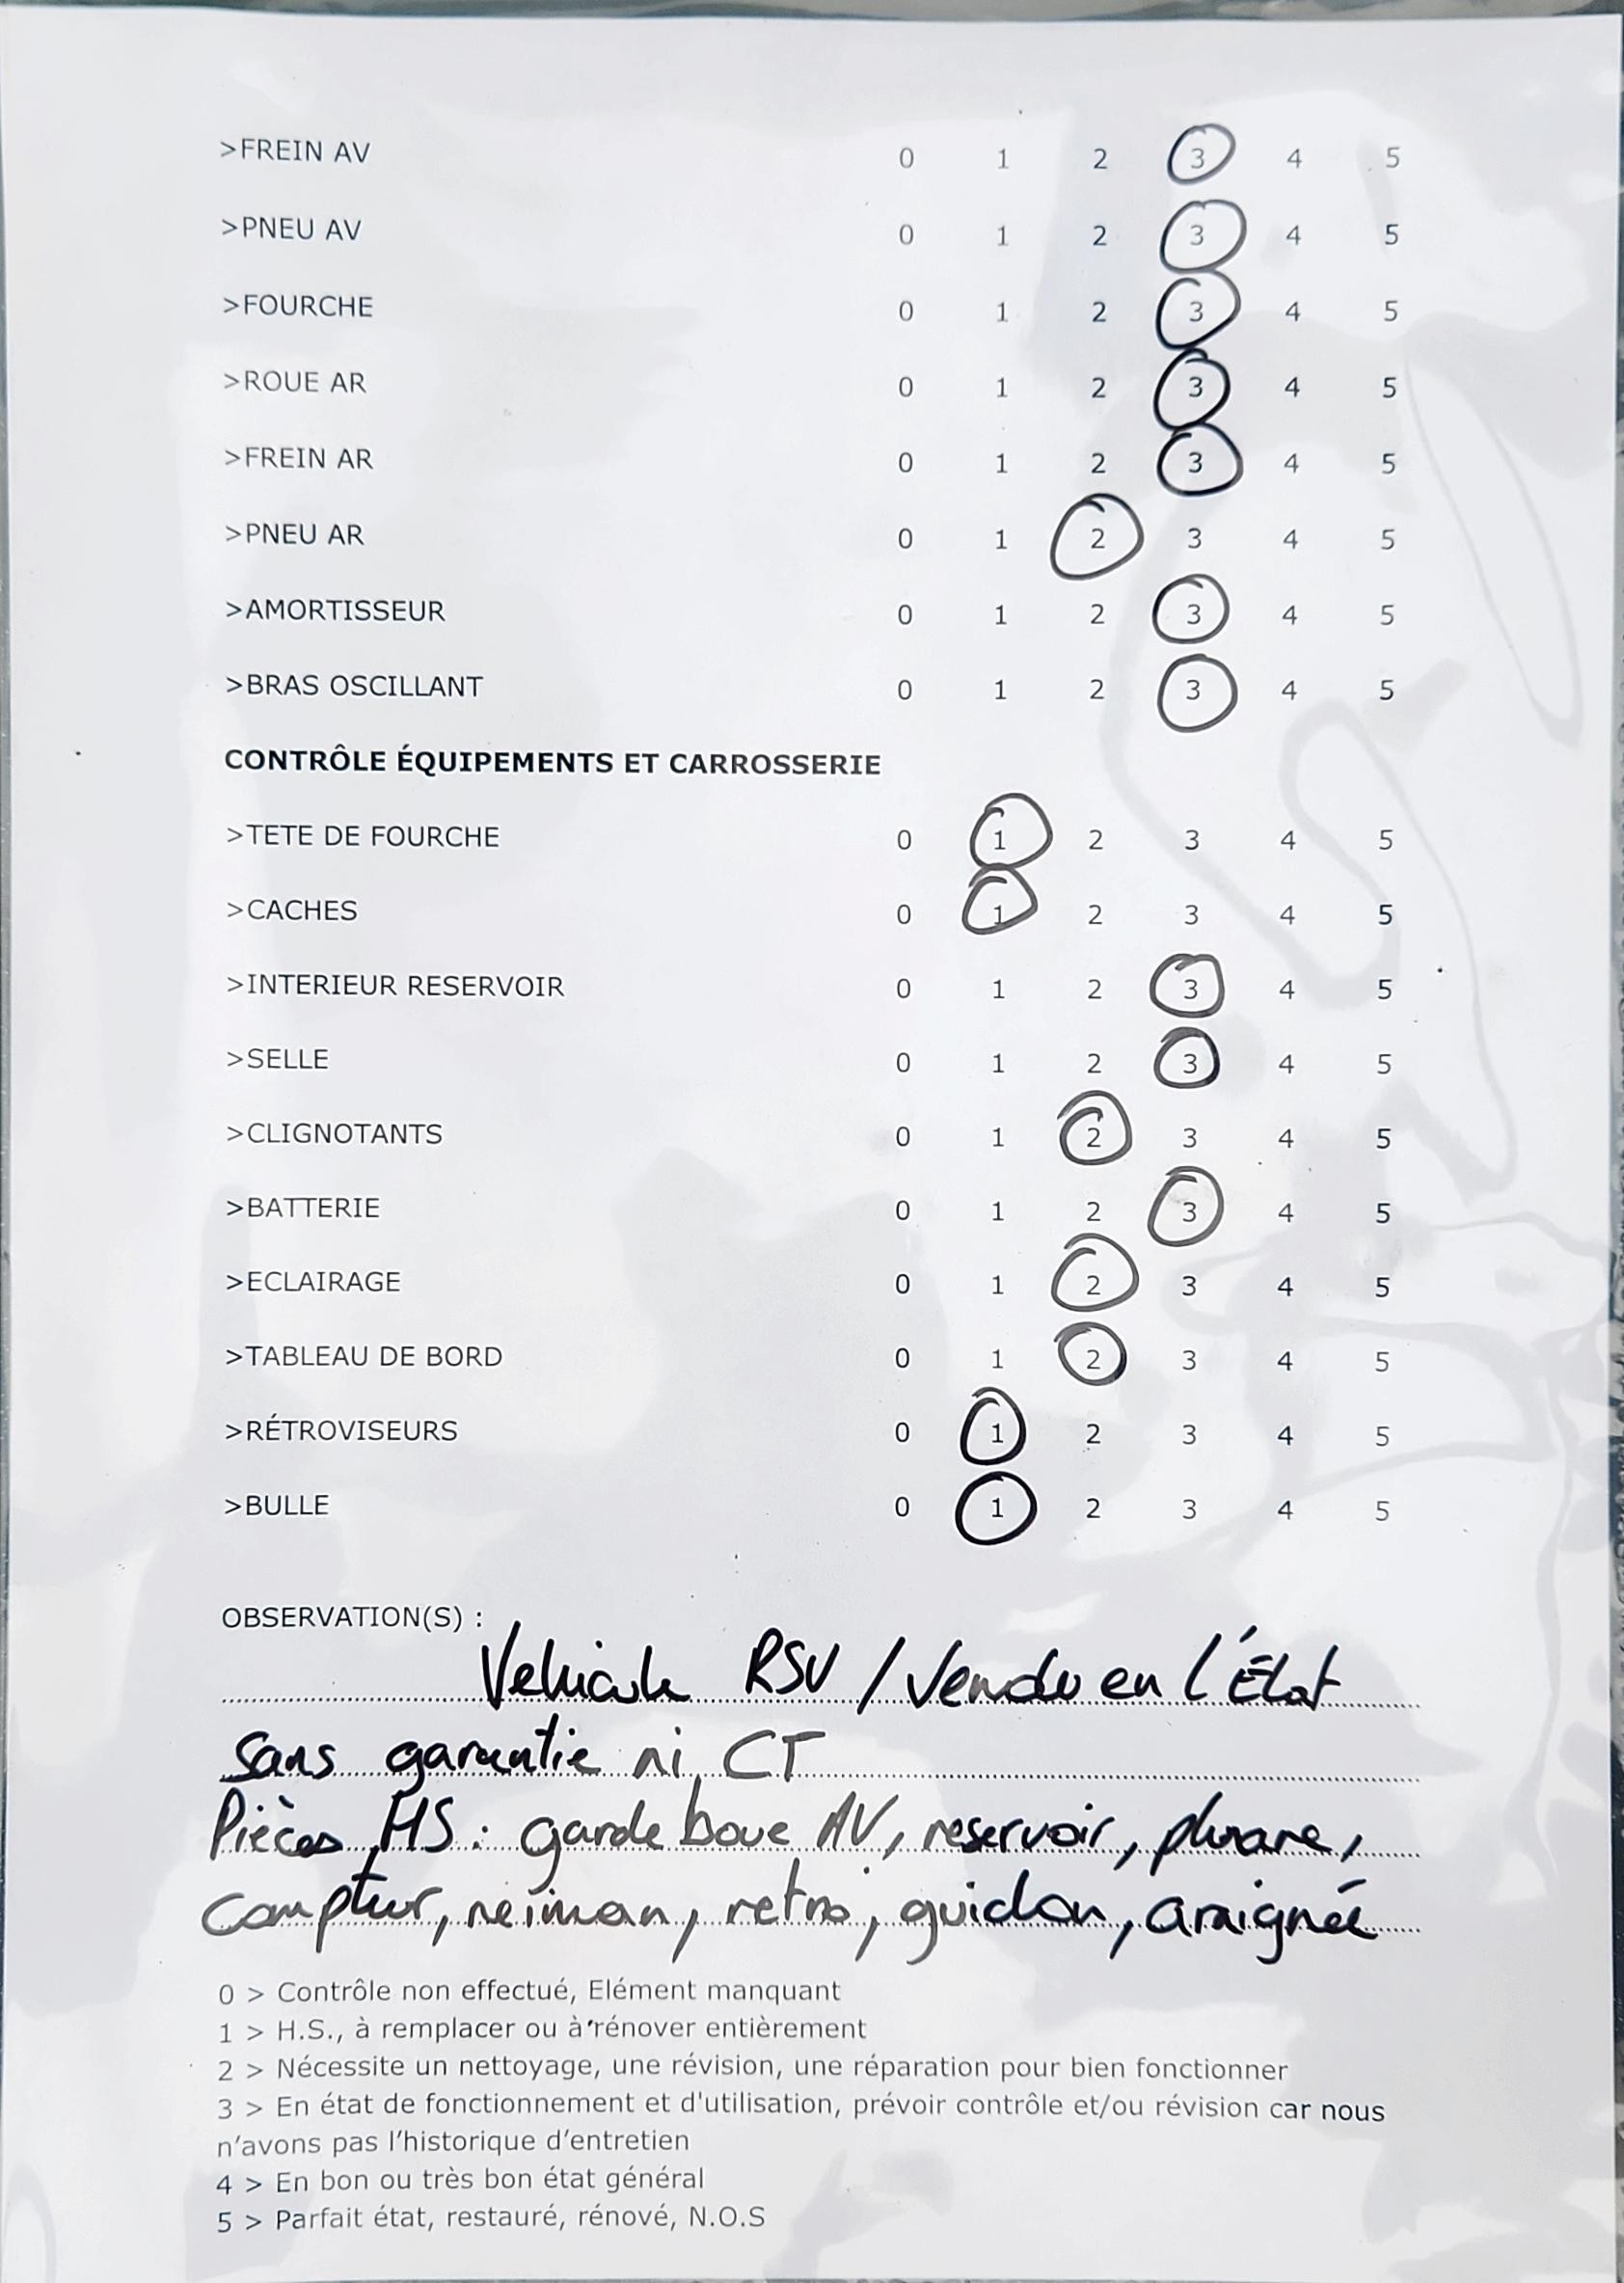 >FREIN AV 0 1 2 3 4 5
>PNEU AV 0 1 2 3 4 5
>FOURCHE 0 1 2 3 4 5
>ROUE AR 0 1 2 3 4 5
>FREIN AR 0 1 2 3 4 5
>PNEU AR 0 1 2 3 4 5
>AMORTISSEUR 0 1 2 3 4 5
>BRAS OSCILLANT 0 1 2 3 4 5
CONTRÔLE ÉQUIPEMENTS ET CARROSSERIE
>TETE DE FOURCHE 0 1 2 3 4 5
>CACHES 0 1 2 3 4 5
>INTERIEUR RESERVOIR 0 1 2 3 4 5
>SELLE 0 1 2 3 4 5
>CLIGNOTANTS 0 1 2 3 4 5
>BATTERIE 0 1 2 3 4 5
>ECLAIRAGE 0 1 2 3 4 5
>TABLEAU DE BORD 0 1 2 3 4 5
>RÉTROVISEURS 0 1 2 3 4 5
>BULLE 0 1 2 3 4 5
OBSERVATION(S) :
Vehicule RSV / Vendu en l'État
sans garantie ni CT
Pièces HS : garde boue AV, reservoir, phare,
compteur, neiman, retro, guidon, araignée
0 > Contrôle non effectué, Elément manquant
1 > H.S., à remplacer ou à rénover entièrement
2 > Nécessite un nettoyage, une révision, une réparation pour bien fonctionner
3 > En état de fonctionnement et d'utilisation, prévoir contrôle et/ou révision car nous
n'avons pas l'historique d'entretien
4 > En bon ou très bon état général
5 > Parfait état, restauré, rénové, N.O.S